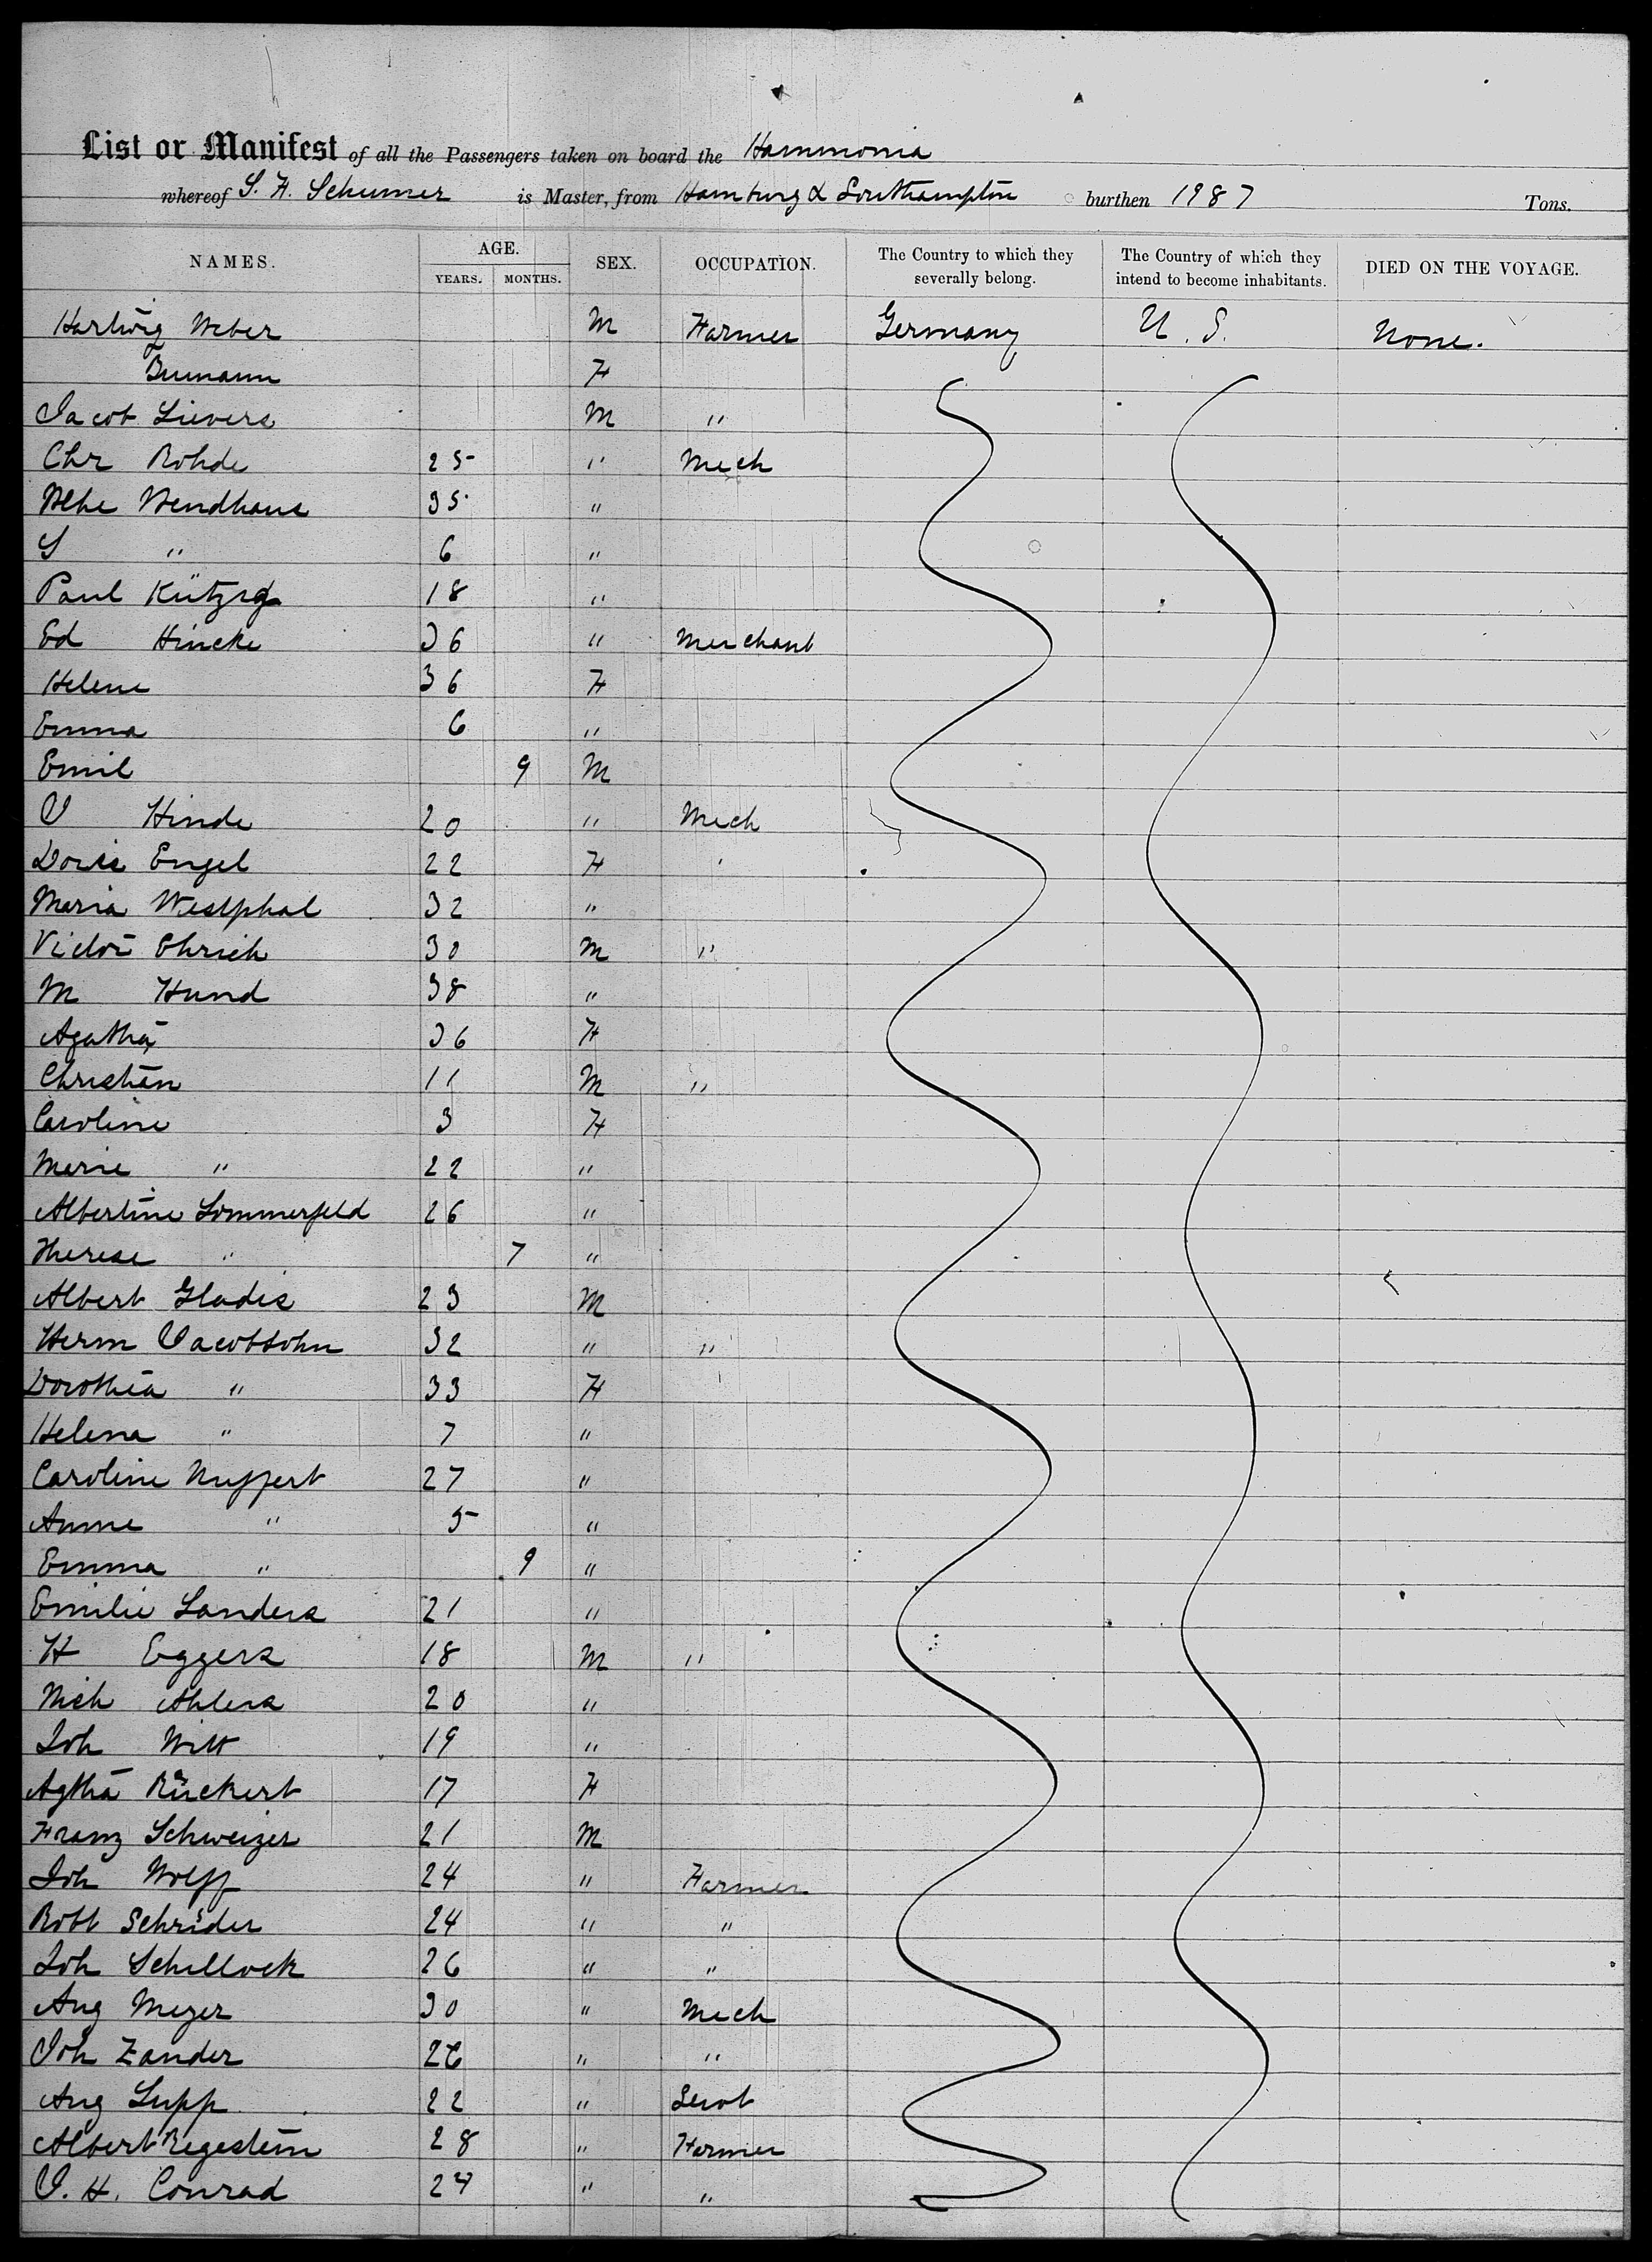 List or Manifest of all the Passengers taken on board the Hammonia
whereof S. H. Schumer is Master, from Hamburg & Southampton burthen 1987 Tons.
NAMES. AGE. YEARS. MONTHS. SEX. OCCUPATION. The Country to which they severally belong. The Country of which they intend to become inhabitants. DIED ON THE VOYAGE.
Hartwig Weber M Farmer Germany U. S. None.
F
Jacob Sievers M "
Chr Rohde 25 " Mech
Wendhaus 35 "
" 6 "
Paul 18 "
Ed Hincke 36 " Merchant
Helene 36 F
Emma 6 "
Emil 9 M
Hinde 20 " Mech
Doris Engel 22 F "
Maria Westphal 32 "
Victor Ehrich 30 M "
M Hund 38 "
Agatha 36 F
Christian 11 M "
Caroline 3 F
Marie " 22 "
Albertine Sommerfeld 26 "
Therese " 7 "
Albert Gladis 23 M
Herm Jacobsohn 32 " "
Dorothea " 33 F
Helena " 7 "
Caroline Ruppert 27 "
Anne " 5 "
Emma " 9 "
Emilie Landers 21 "
H Eggers 18 M "
Nich Ahlers 20 "
Joh Witt 19 "
Agtha Rückert 17 F
Franz Schweizer 21 M
Joh Wolff 24 " Farmer
Robt Schröder 24 " "
Joh Schellock 26 " "
Aug Meyer 30 " Mech
Joh Zander 26 " "
Aug Lupp 22 " Servt
Albert Regestein 28 " Farmer
J. H. Conrad 24 " "